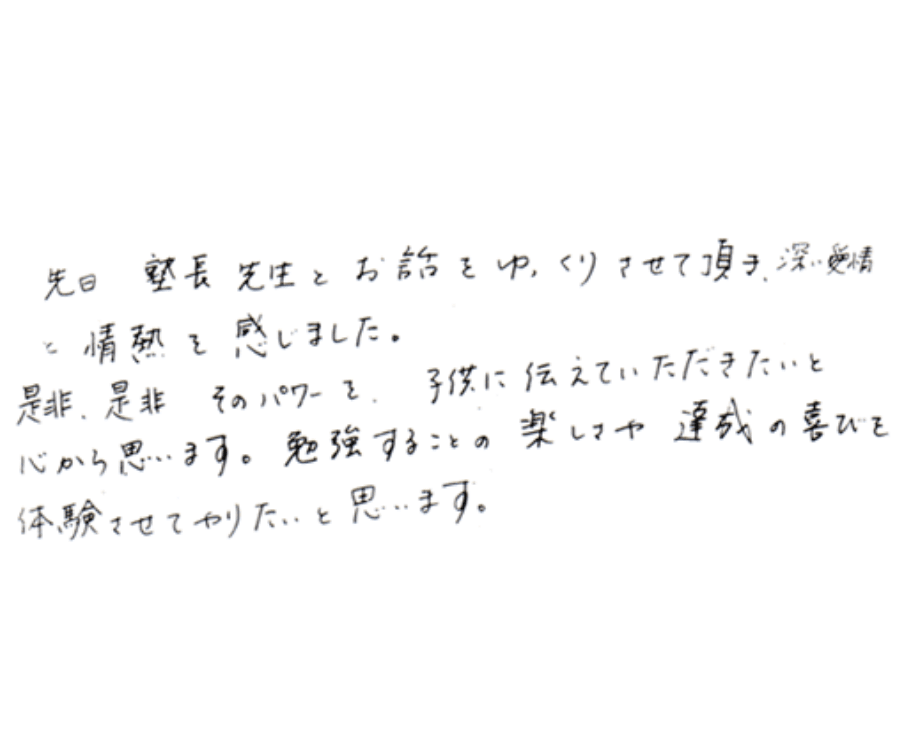 先日 塾長先生とお話をゆっくりさせて頂き、深い愛情
と情熱を感じました。
是非、是非 そのパワーを、子供に伝えていただきたいと
心から思います。勉強することの楽しさや達成の喜びを
体験させてやりたいと思います。